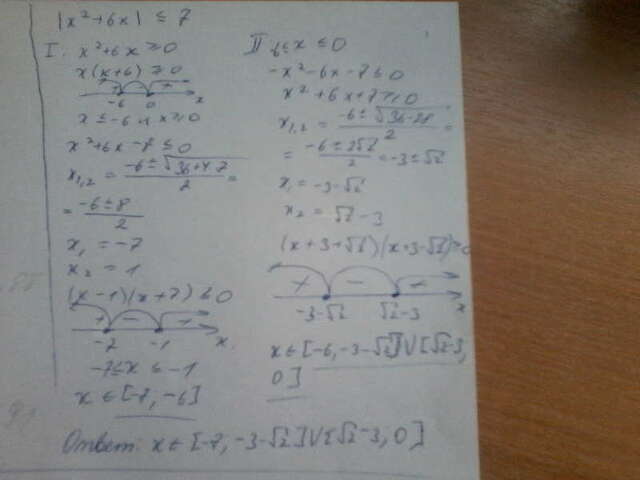 |x²+6x| ≤ 7
I. x²+6x ≥ 0
x(x+6) ≥ 0
+ - +
-6 0 x
x ≤ -6 x ≥ 0
x²+6x-7 ≤ 0
x₁,₂ = (-6±√(36+4·7))/2 =
= (-6±8)/2
x₁ = -7
x₂ = 1
(x-1)(x+7) ≤ 0
+ - +
-7 -1 x
-7 ≤ x ≤ -1
x ∈ [-7, -6]
II -6 ≤ x ≤ 0
-x²-6x-7 ≤ 0
x²+6x+7 ≥ 0
x₁,₂ = (-6±√(36-28))/2 =
= (-6±2√2)/2 = -3±√2
x₁ = -3-√2
x₂ = √2-3
(x+3+√2)(x+3-√2) ≥ 0
+ - +
-3-√2 √2-3 x
x ∈ [-6, -3-√2] ∪ [√2-3,
0]
Ответ: x ∈ [-7, -3-√2] ∪ [√2-3, 0]